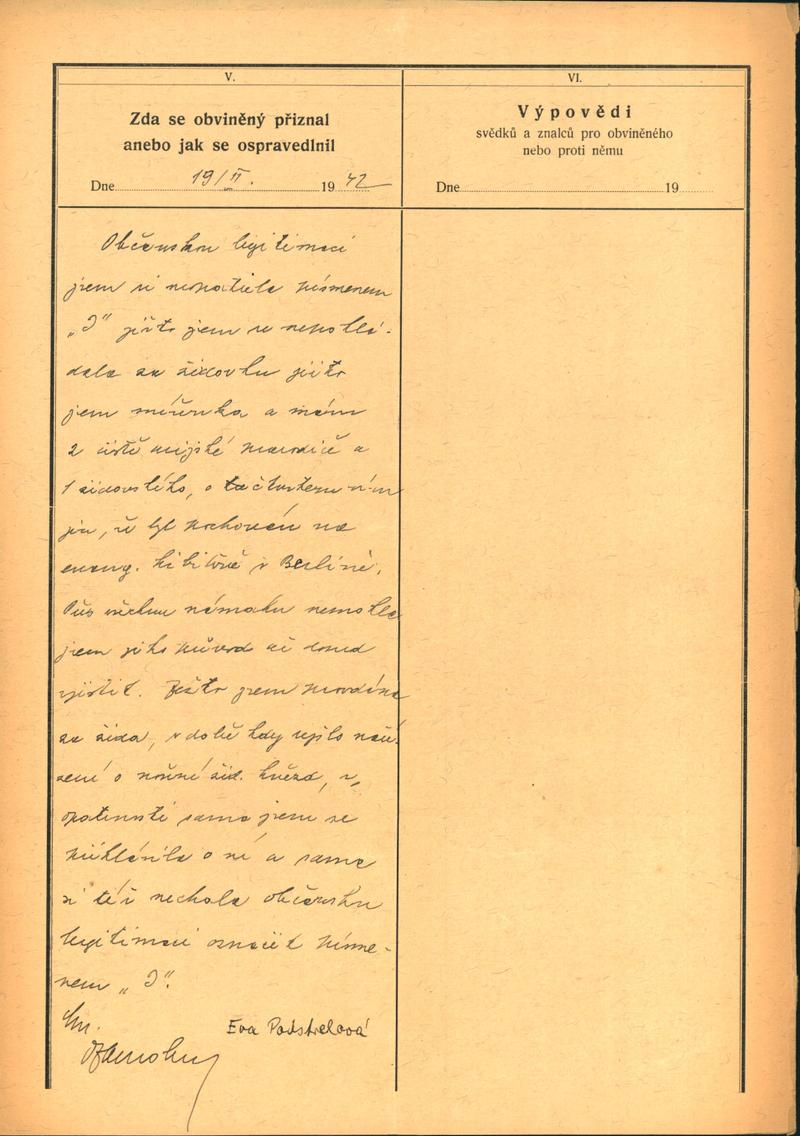 V.
Zda se obviněný přiznal
anebo jak se ospravedlnil
Dne 19/II. 19 42
VI.
Výpovědi
svědků a znalců pro obviněného
nebo proti němu
Dne 19
Občanskou legitimaci
jsem si neopatřila písmenem
„J" ježto jsem se nepoklá-
dala za židovku ježto
jsem míšenka a mám
2 čistě arijské prarodiče a
1 židovského, o čtvrtém vím
jen, že byl pochován na
evang. hřbitově v Berlíně.
Přes všechnu námahu nemohla
jsem jeho původ až dosud
zjistit. Ježto jsem provdána
za žida, v době kdy vyšlo naří-
zení o nošení žid. hvězd, z
opatrnosti sama jsem se
přihlásila o ni a sama
si též nechala občanskou
legitimaci označit písme-
nem „J".
Eva Podstrelová